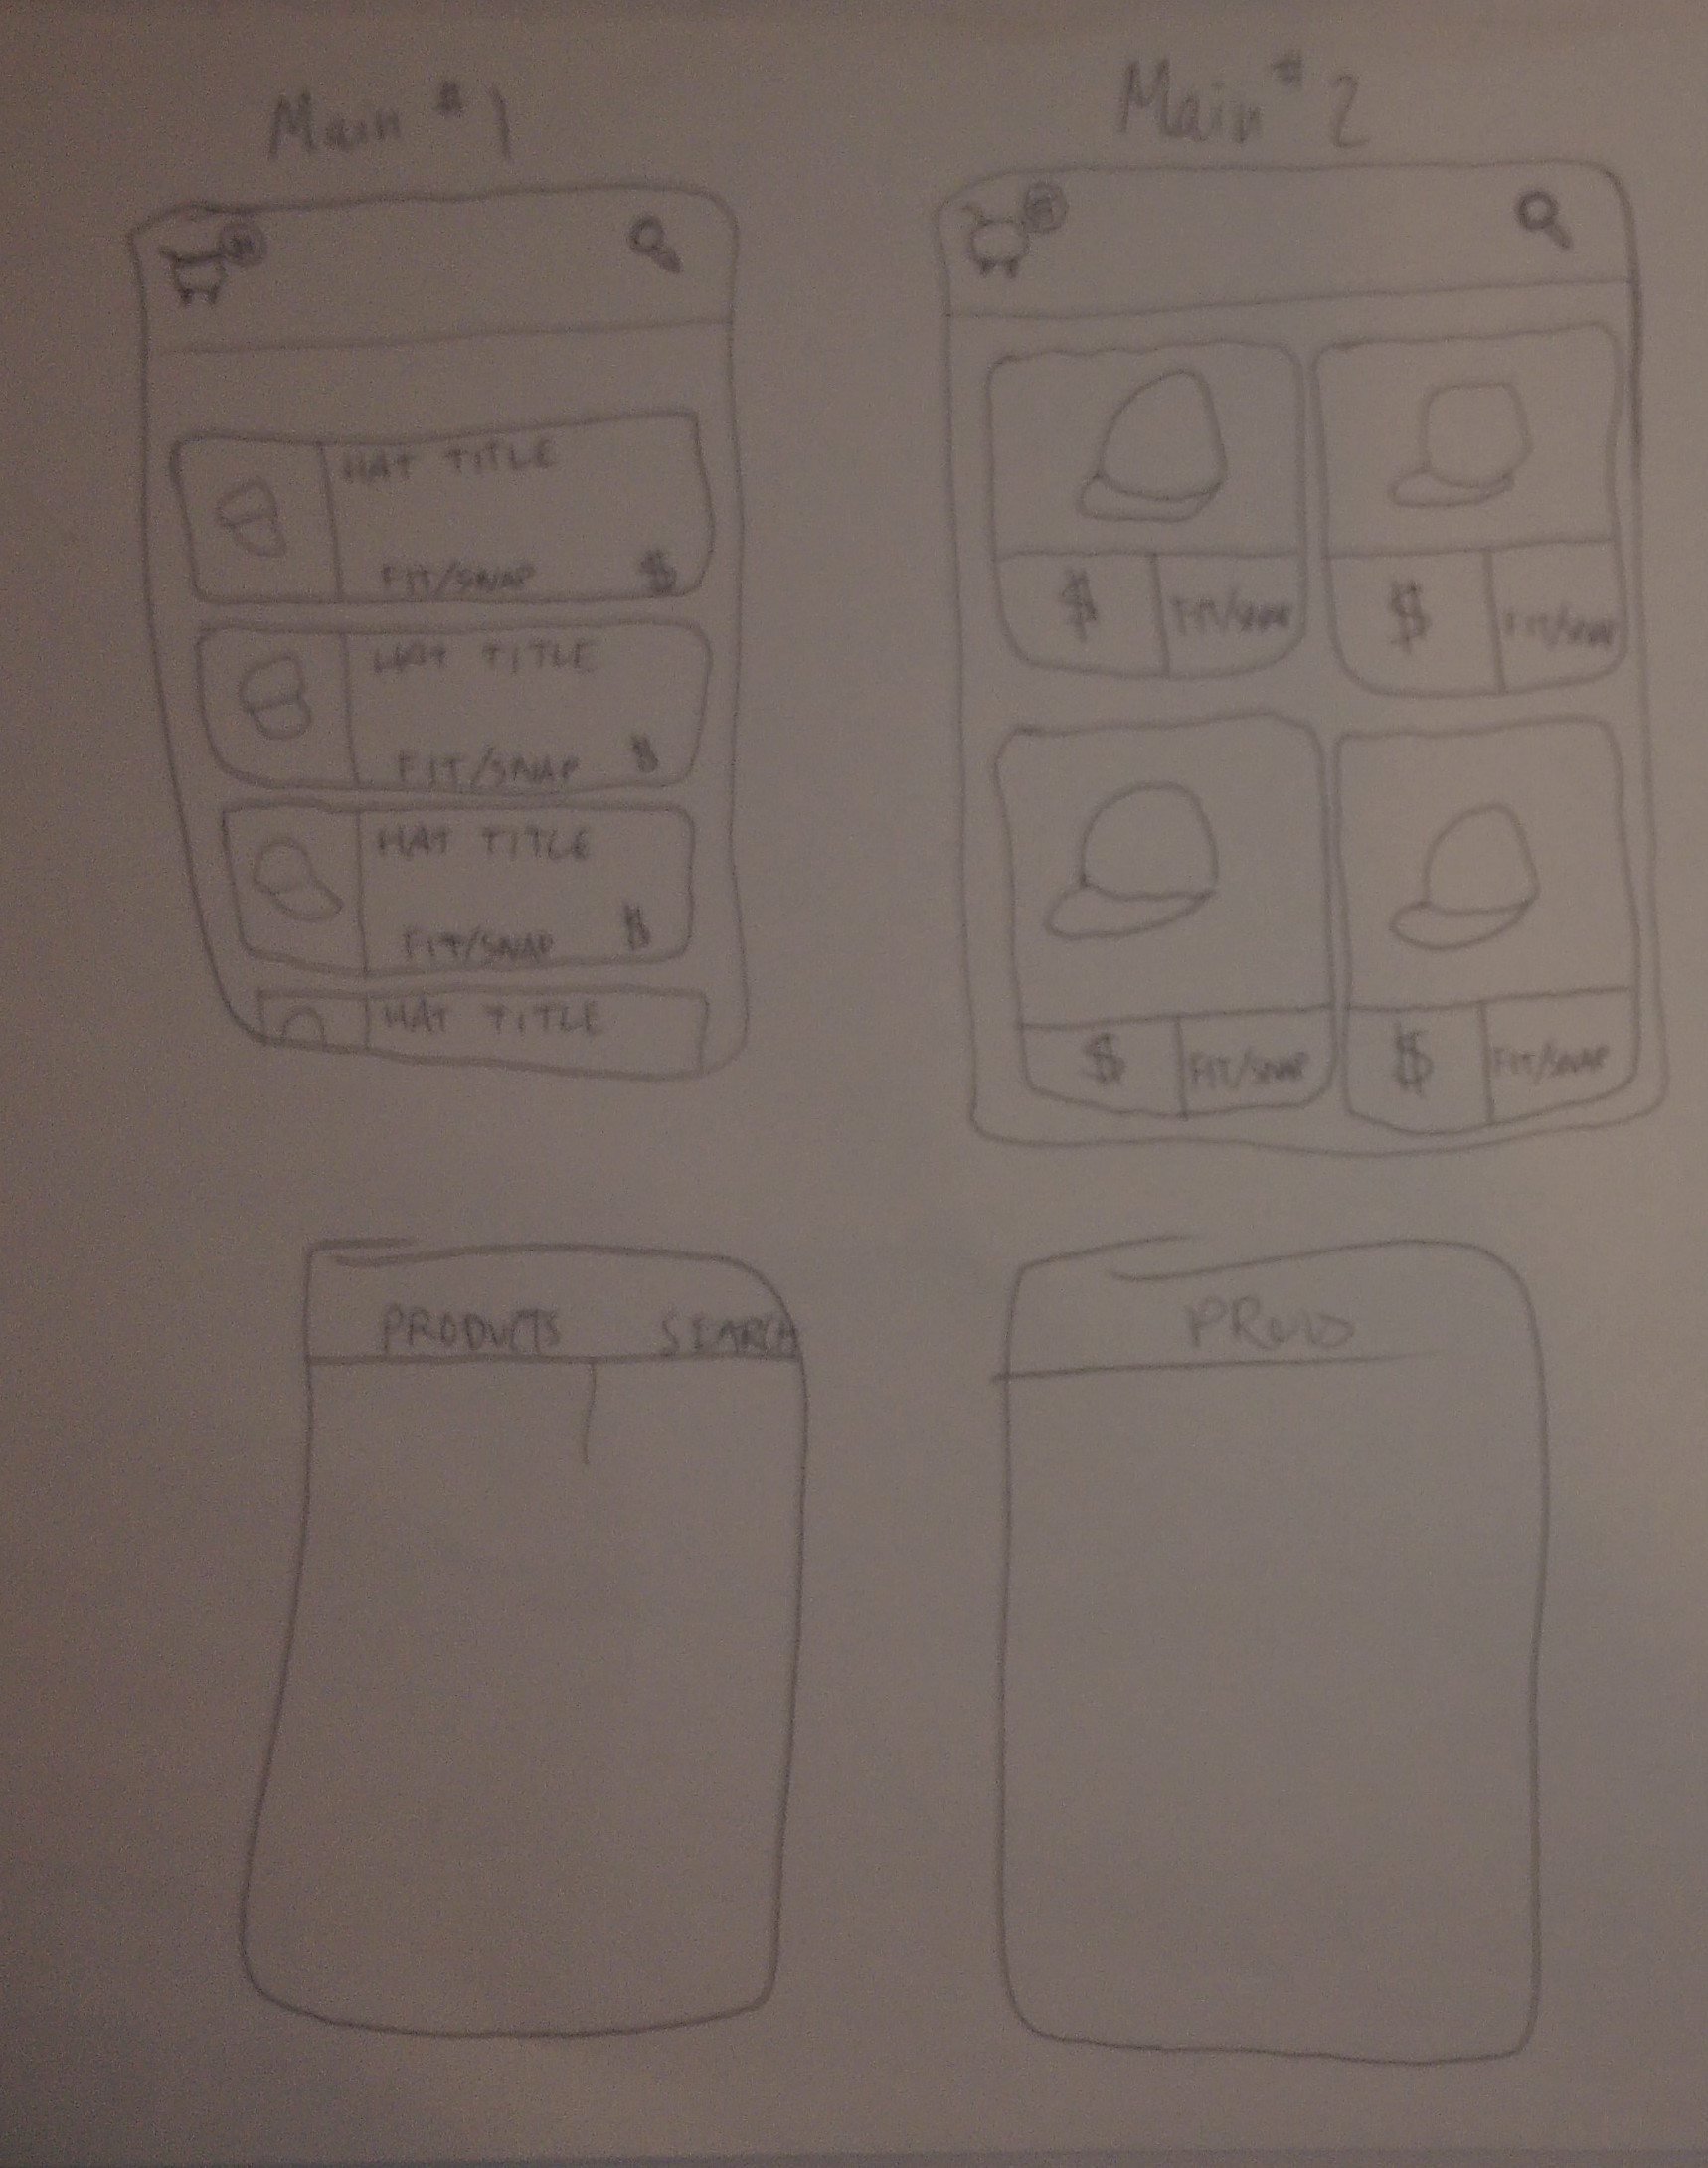 Main #1
Main #2
HAT TITLE
FIT/SNAP $
HAT TITLE
FIT/SNAP $
HAT TITLE
FIT/SNAP $
HAT TITLE
$ FIT/SNAP
$ FIT/SNAP
$ FIT/SNAP
$ FIT/SNAP
PRODUCTS SEARCH